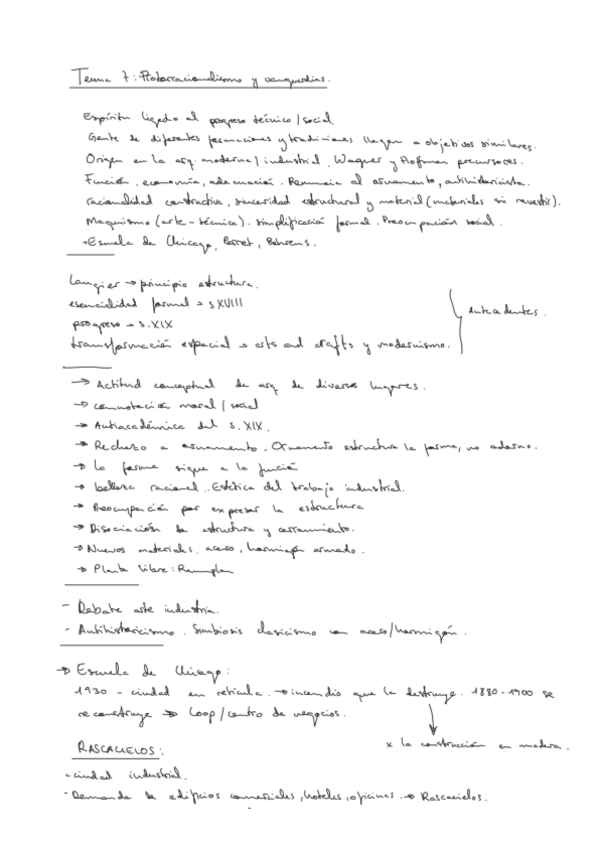 Tema 7: Protorracionalismo y vanguardias.
Espíritu ligado al progreso técnico/social.
Gente de diferentes formaciones y tradiciones llegan a objetivos similares.
Origen en la arq. moderna/industrial. Wagner y Hoffman precursores.
Función, economía, adecuación. Renuncia al ornamento, antihistoricista.
racionalidad constructiva, sinceridad estructural y material (materiales sin revestir).
Maquinismo (arte-técnica). simplificació formal. Preocupación social.
→Escuela de Chicago, Perret, Behrens.
Laugier → principio estructura.
esencialidad formal → s XVIII
progreso → s. XIX
transformación espacial → arts and crafts y modernismo.
Antecedentes.
→ Actitud conceptual de arq de diversos lugares.
→ connotación moral/social
→ Antiacadémica del s. XIX.
→ Rechazo a ornamento. Ornamento estructura la forma, no adorno.
→ la forma sigue a la función
→ belleza racional. Estética del trabajo industrial.
→ Preocupación por expresar la estructura
→ Disociación de estructura y cerramiento.
→ Nuevos materiales. acero, hormigón armado.
→ Planta libre: Raumplan
- Debate arte industria.
- Antihistoricismo. Simbiosis clasicismo con acero/hormigón.
→ Escuela de Chicago:
1930 - ciudad en retícula. → incendio que la destruye. 1880-1900 se
reconstruye → Loop/centro de negocios.
x la construcción en madera.
RASCACIELOS:
- ciudad industrial.
- Demanda de edificios comerciales, hoteles, oficinas. → Rascacielos.